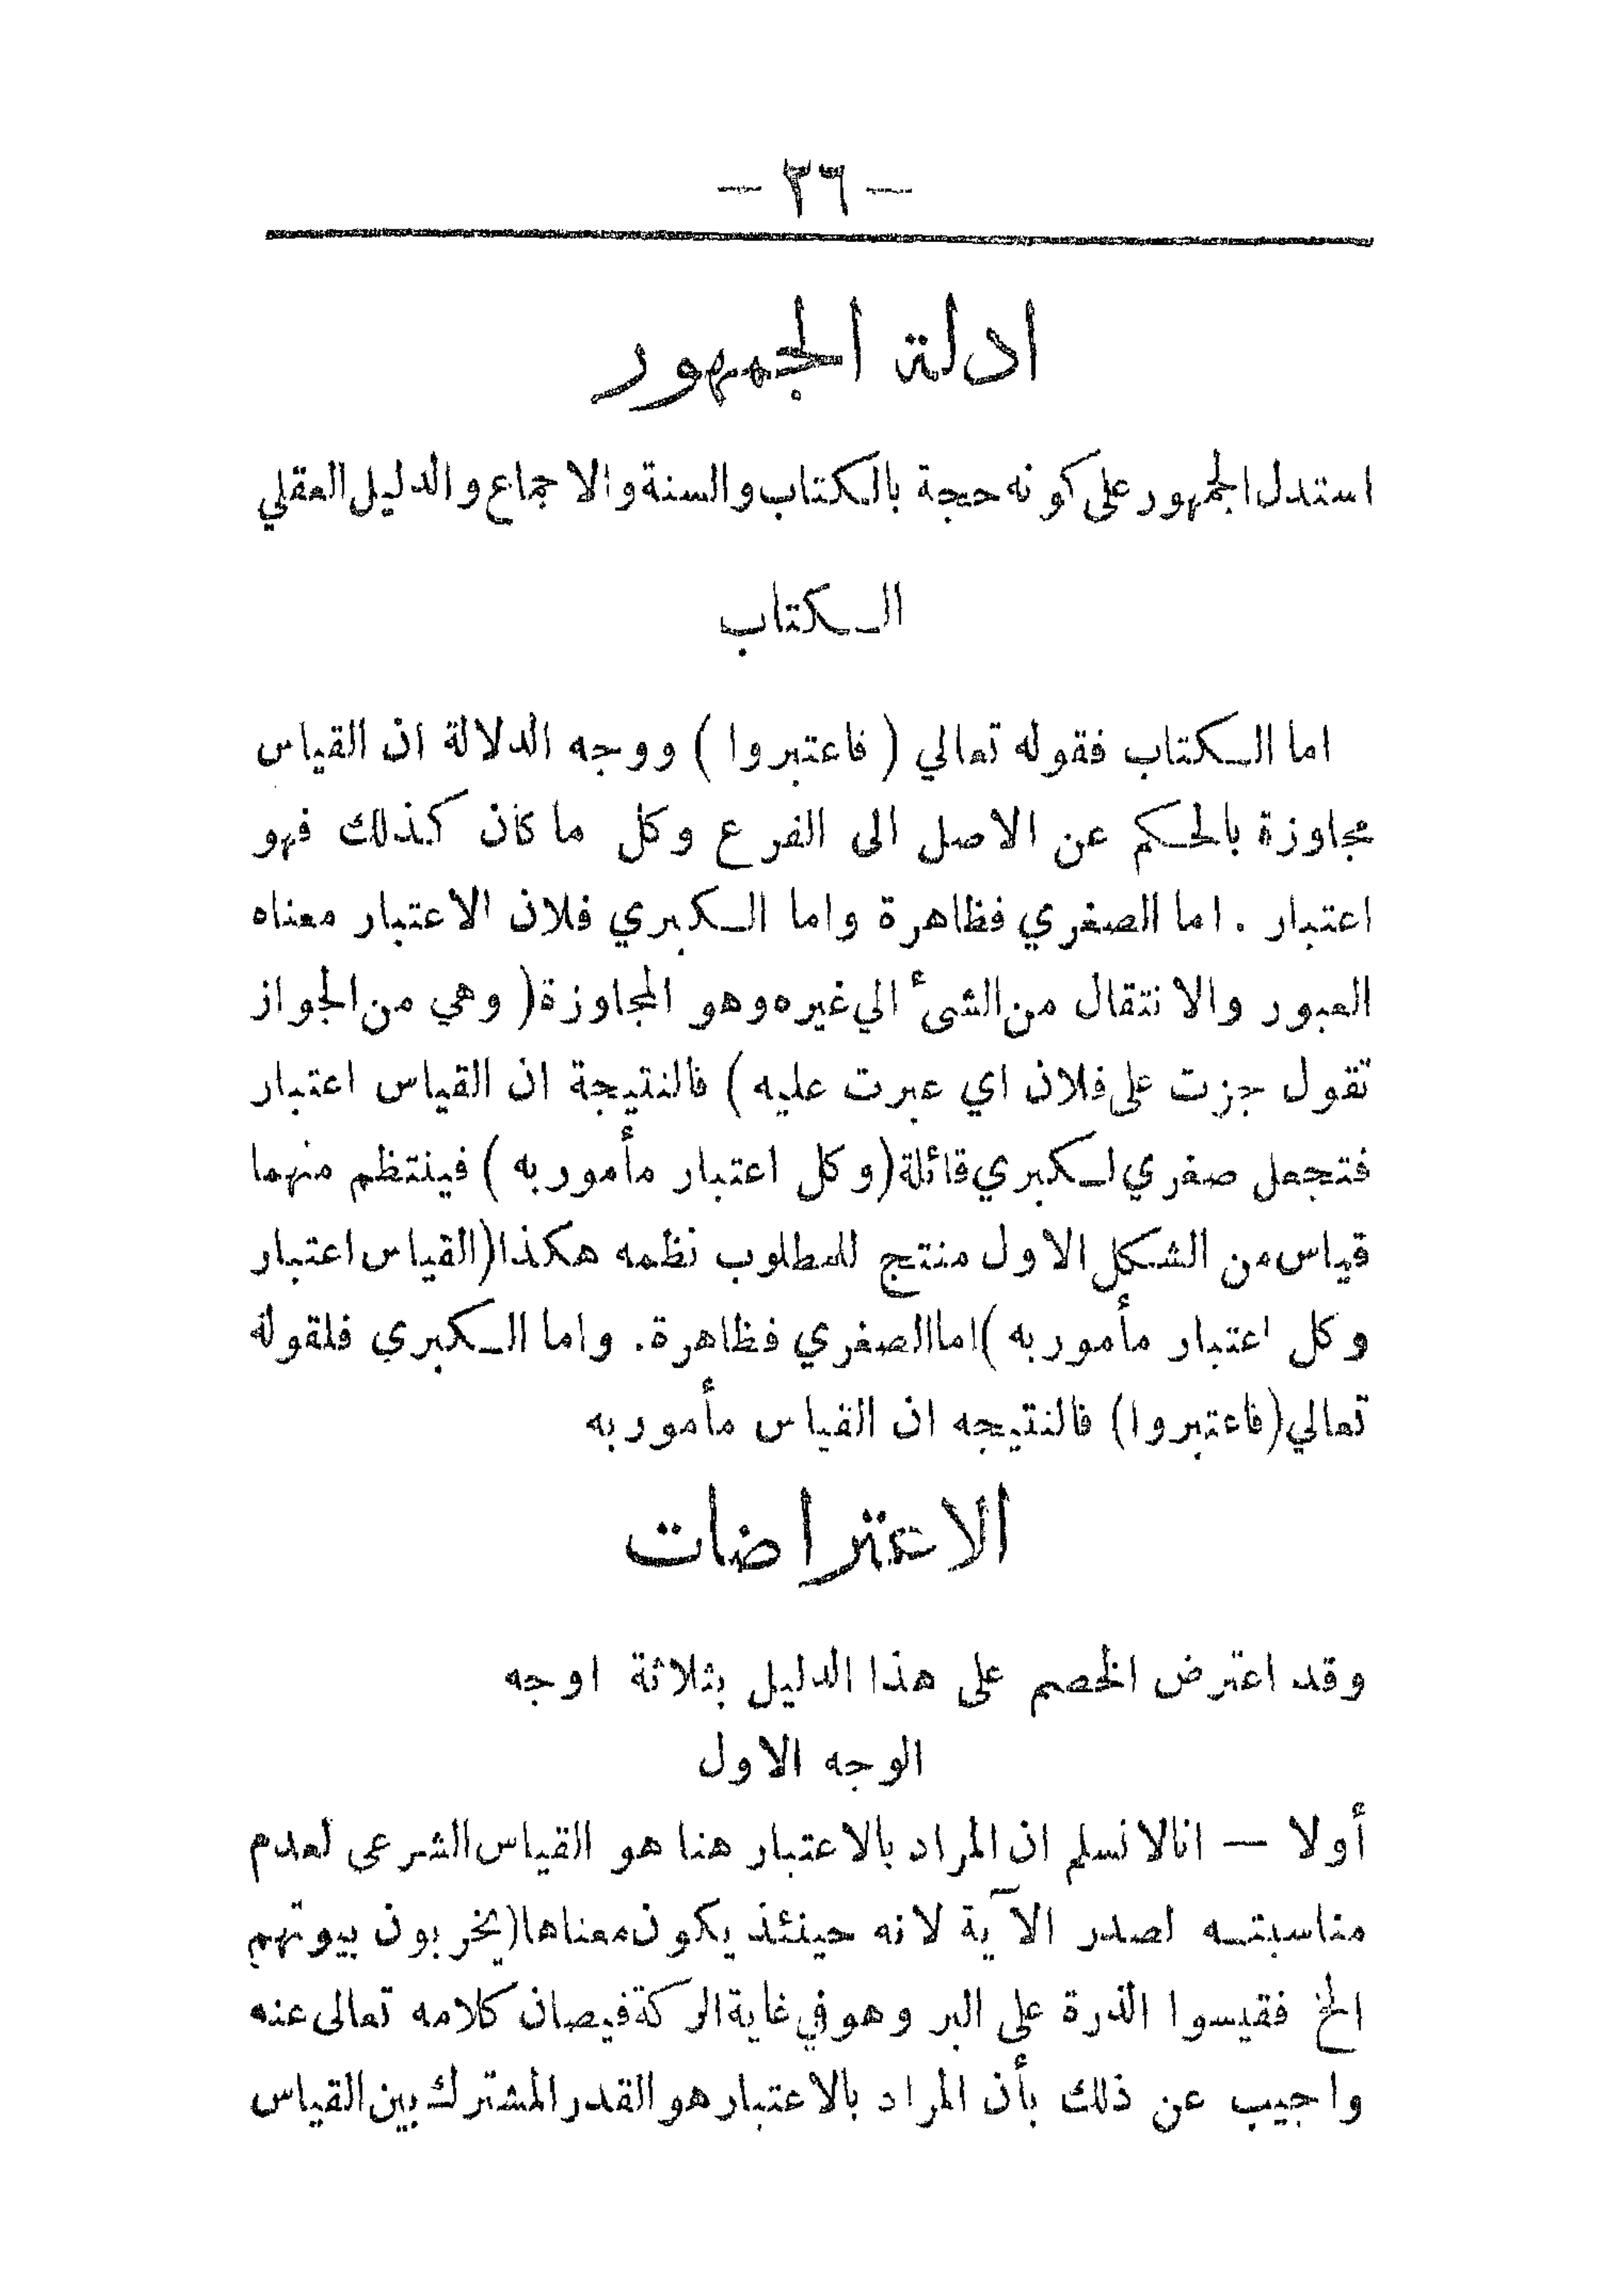 — ٣٦ —
ادلة الجمهور
استدل الجمهور على كونه حجة بالكتاب والسنة والاجماع والدليل العقلي
الكتاب
اما الكتاب فقوله تعالي ( فاعتبروا ) ووجه الدلالة ان القياس
مجاوزة بالحكم عن الاصل الى الفرع وكل ما كان كذلك فهو
اعتبار . اما الصغري فظاهرة واما الكبري فلان الاعتبار معناه
العبور والانتقال من الشىء الي غيره وهو المجاوزة ( وهي من الجواز
تقول جزت على فلان اي عبرت عليه ) فالنتيجة ان القياس اعتبار
فتجعل صغري لكبري قائلة ( وكل اعتبار مأمور به ) فينتظم منهما
قياس من الشكل الاول منتج للمطلوب نظمه هكذا ( القياس اعتبار
وكل اعتبار مأمور به ) اما الصغري فظاهرة . واما الكبري فلقوله
تعالي ( فاعتبروا ) فالنتيجه ان القياس مأمور به
الاعتراضات
وقد اعترض الخصم على هذا الدليل بثلاثة اوجه
الوجه الاول
أولا — انا لا نسلم ان المراد بالاعتبار هنا هو القياس الشرعى لعدم
مناسبته لصدر الآية لانه حينئذ يكون معناها ( يخربون بيوتهم
الخ فقيسوا الذرة على البر وهو في غاية الركة فيصان كلامه تعالى عنه
واجيب عن ذلك بأن المراد بالاعتبار هو القدر المشترك بين القياس